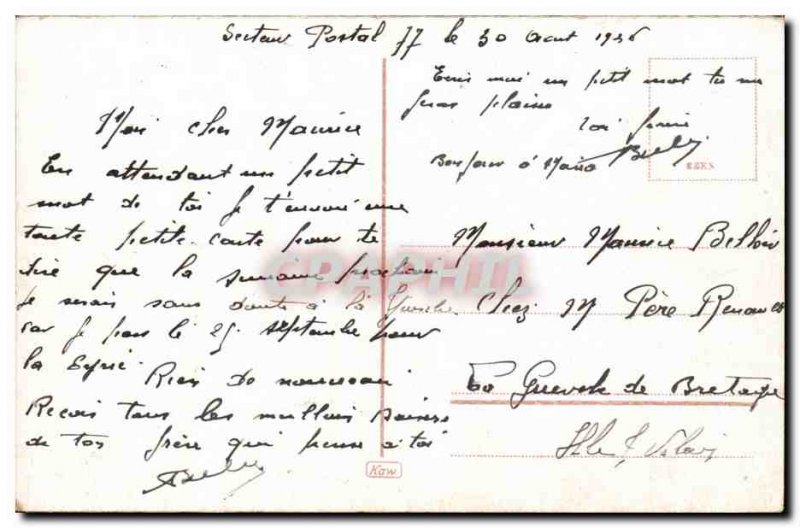 Secteur Postal 77 le 30 Aout 1926
Ecris moi un petit mot tu me
feras plaisir
Ton frère
Bonjour à Maria
Mon cher Maurice
En attendant un petit
mot de toi je t'envoie une
toute petite carte pour te
dire que la semaine prochaine
je serais sans doute à la Guerche
car je pars le 25 septembre pour
la Syrie.
Rien de nouveau
Recois tous les meilleurs baisers
de ton frère qui pense à toi
Monsieur Maurice
Chez M Père
La Guerche de Bretagne
Ille & Vilaine
CPAPHIL
Kaw